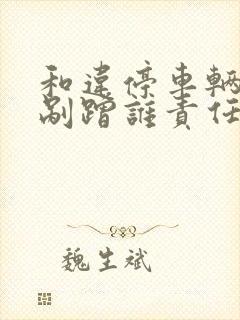 和違停車輛
剮蹭誰責任
魏生斌